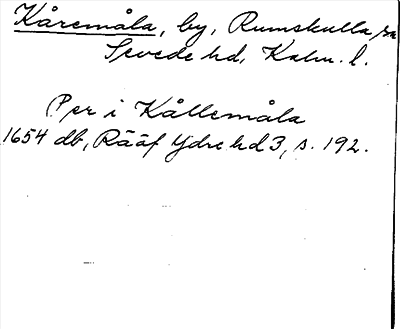 Kåremåla, by, Rumskulla sn
Sevede hd, Kalm. l.
Per i Kållemåla
1654 db, Rääf Ydre hd 3, s. 192.